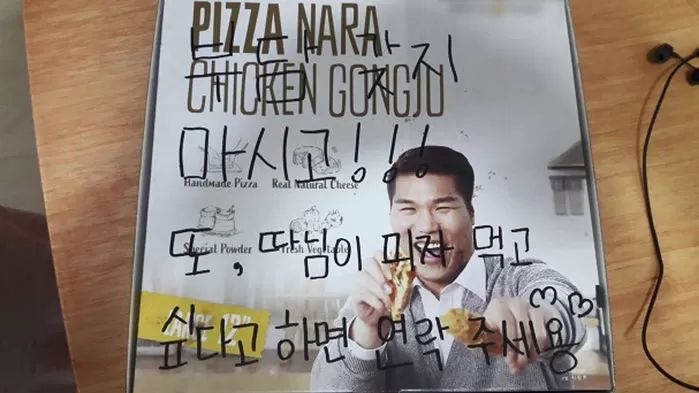 PIZZA NARA
부담 갖지
CHICKEN GONGJU
마시고!!!
Handmade Pizza
Real Natural Cheese
Special Powder
Fresh Vegetable
또, 따님이 피자 먹고
LARGE 12"
싶다고 하면 연락 주세용